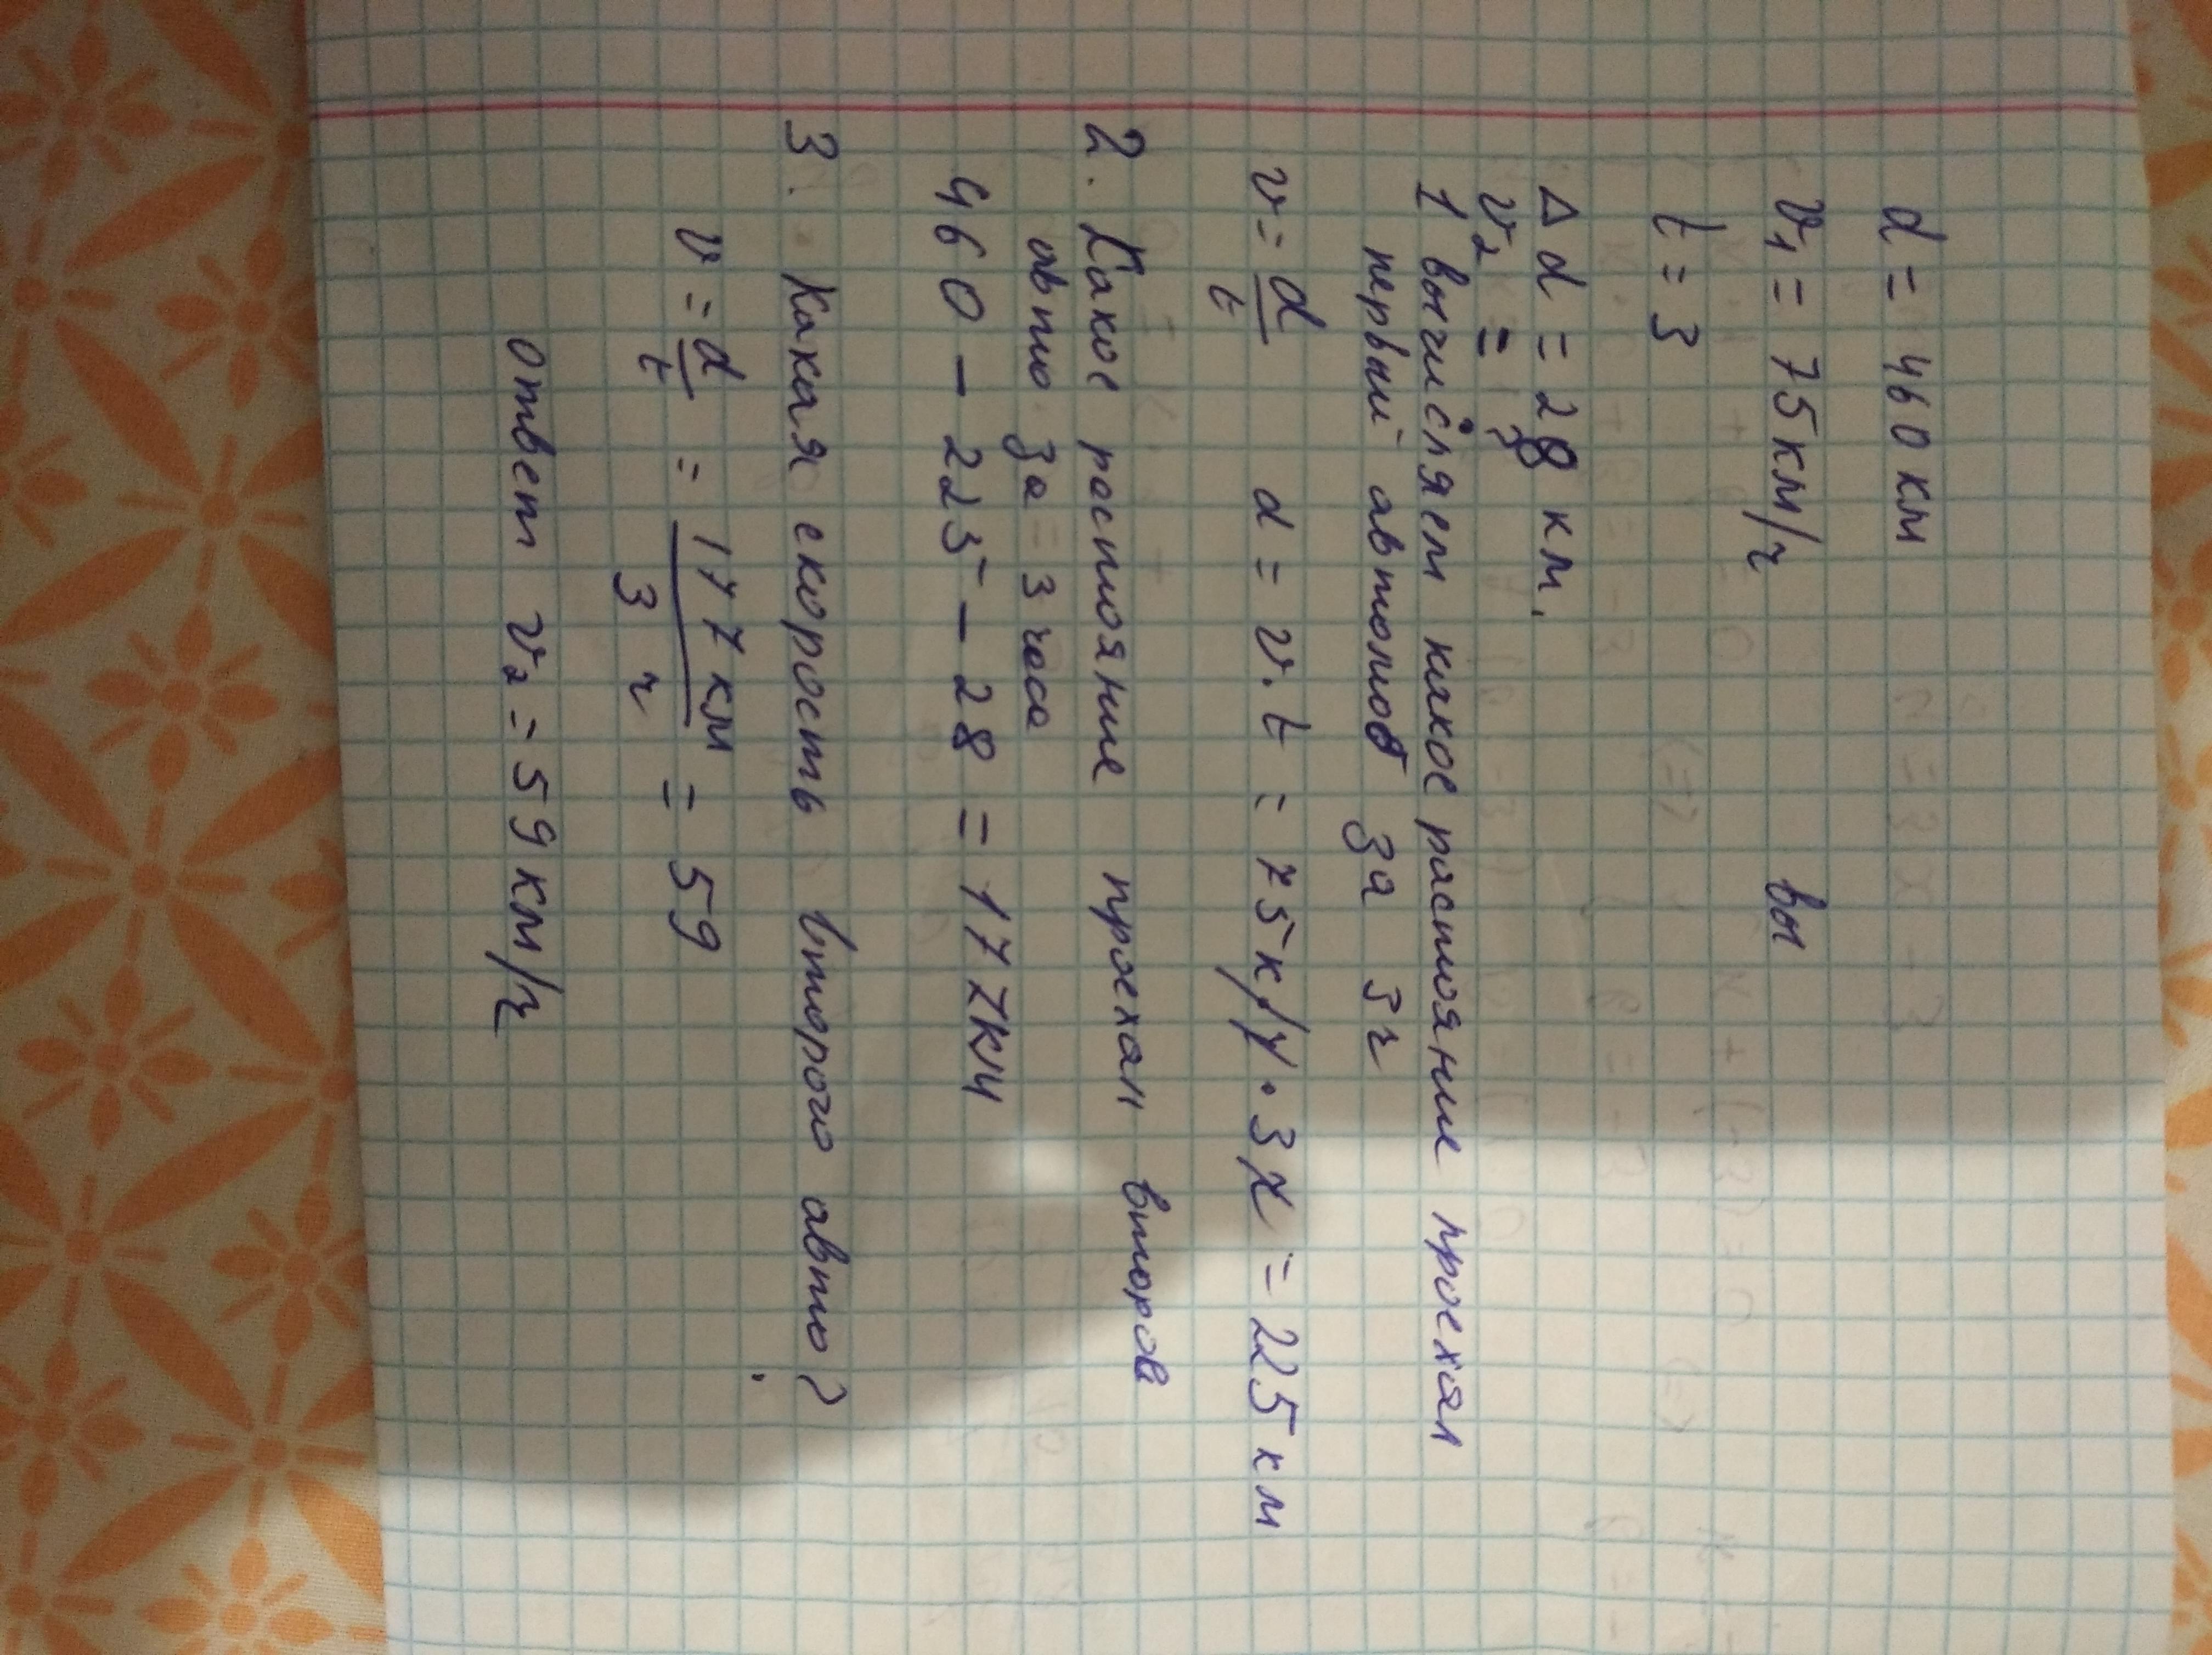 d = 460 км
v₁ = 75 км/ч вы
t = 3
Δd = 28 км.
v₂ = ?
1 вычисляем какое растояние проехал
первый автомоб за 3 ч
v = d/t d = v · t = 75 к/ч · 3 ч = 225 км
2. Какое растояние проехал второв
авто за = 3 часа
460 – 225 – 28 = 177 км
3. Какая скорость второго авто?
v = d/t = 177 км / 3 ч = 59
ответ v₂ = 59 км/ч